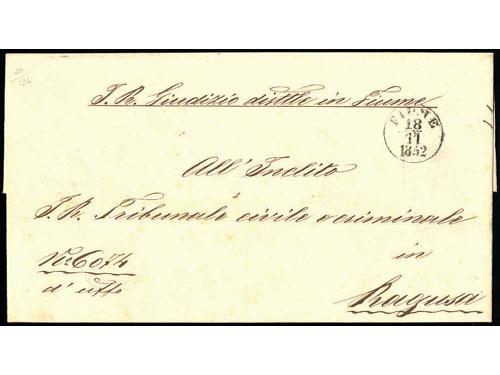 I. R. Giudizio disttle in Fiume
FIUME
18
11
1852
All' Inclito
I. R. Tribunale civile e criminale
in
No. 6074
d' uffo
Ragusa